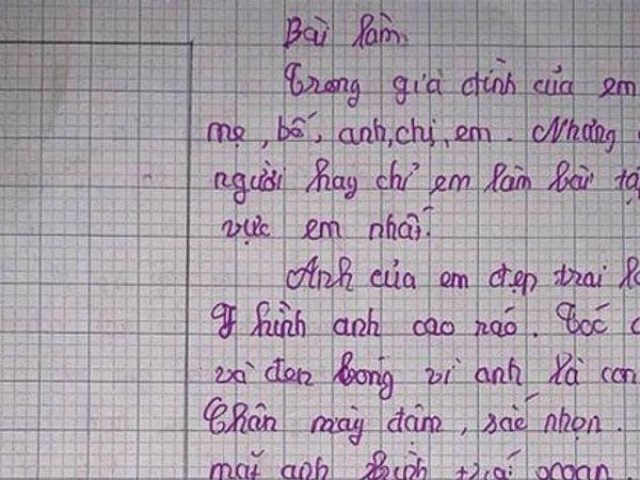 Bài làm
Trong gia đình của em
mẹ, bố, anh, chị, em. Nhưng
người hay chỉ em làm bài tậ
vực em nhất.
Anh của em đẹp trai l
hình anh cao ráo. Tóc
và đen bóng vì anh là con
Chân mày đậm, sắc nhọn.
mắt anh hình